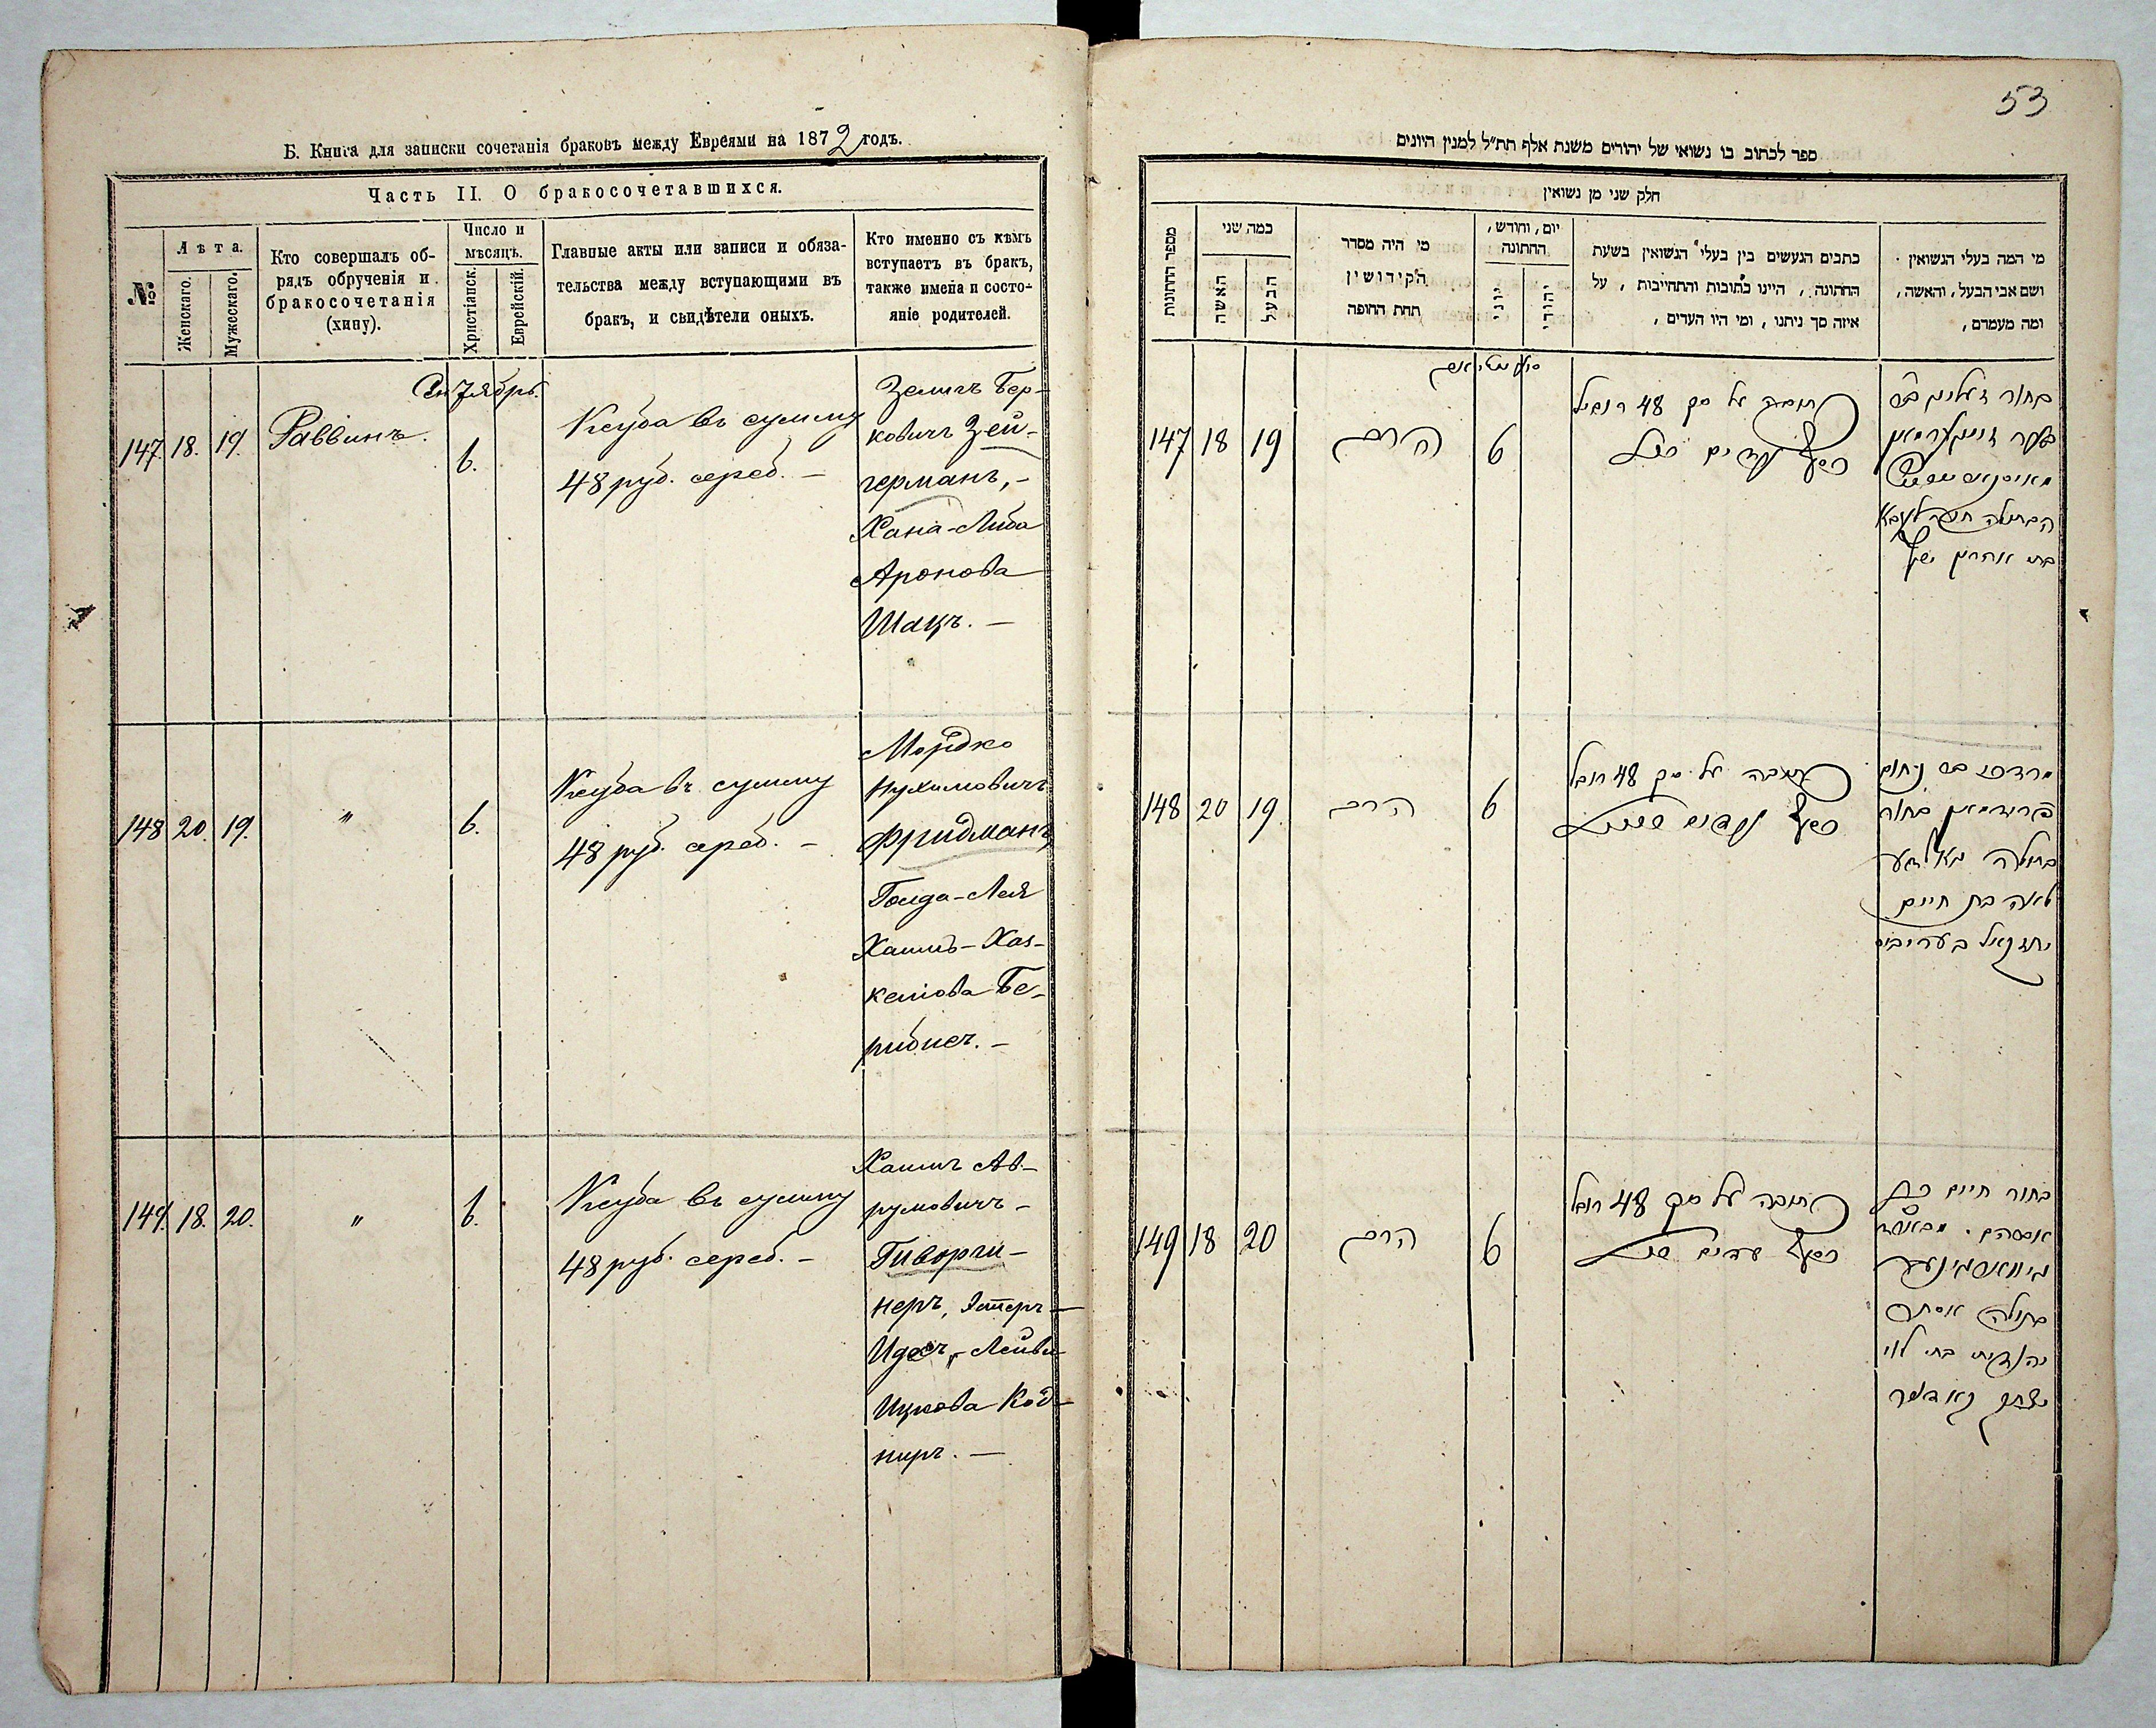 Б. Книга для записки сочетанія браковъ между Евреями на 1872 годъ.
Часть II. О бракосочетавшихся.
№
Лѣта.
Женскаго.
Мужескаго.
Кто совершалъ об-
рядъ обрученія и
бракосочетанія
(хипу).
Число и
мѣсяцъ.
Христіанск.
Еврейскій.
Главные акты или записи и обяза-
тельства между вступающими въ
бракъ, и свидѣтели оныхъ.
Кто именно съ кѣмъ
вступаетъ въ бракъ,
также имена и состо-
яніе родителей.
Сентябрь.
147. 18. 19. Раввинъ. 6.
Ксуба въ сумму
48 руб. сереб. —
Зелигъ Бер-
ковичъ Зей-
германъ, —
Хана-Либа
Аронова
Шацъ. —
148 20. 19. " 6.
Ксуба въ сумму
48 руб. сереб. —
Мордко
Нухимовичъ
Фридманъ,
Голда-Лея
Хаимъ-Хаз-
келіова Бе-
рибисъ. —
149. 18. 20. " 6.
Ксуба въ сумму
48 руб. сереб. —
Хаимъ Ав-
румовичъ —
Гиворги-
неръ, Эстеръ —
Идесъ, Лейви-
Ицкова Код-
ниръ. —
53
ספר לכתוב בו נשואי של יהודים משנת אלף תת״ל למנין היונים
חלק שני מן נשואין
מספר החתונות
כמה שני
האשה
הבעל
מי היה מסדר
הקידושין
תחת החופה
יום, וחודש,
החתונה
יוני
יהודי
כתבים הנעשים בין בעלי הנשואין בשעת
החתונה, היינו כתובות והתחייבות, על
איזה סך ניתנו, ומי היו העדים,
מי המה בעלי הנשואין
ושם אבי הבעל, והאשה,
ומה מעמדם,
147 18 19 הרב 6
כתובה על סך 48 רובל
כסף
הבתולה חנה ליבא
בת אהרן שץ
148 20 19 הרב 6
כתובה על סך 48 רובל
כסף
מרדכי בר נחום
פרידמאן בחור
בתולה גאלדע
לאה בת חיים
יחזקאל בעריביס
149 18 20 הרב 6
כתובה על סך 48 רובל
כסף
בחור חיים
בתולה אסתר
יהודית בת לוי
יצחק קאדניר